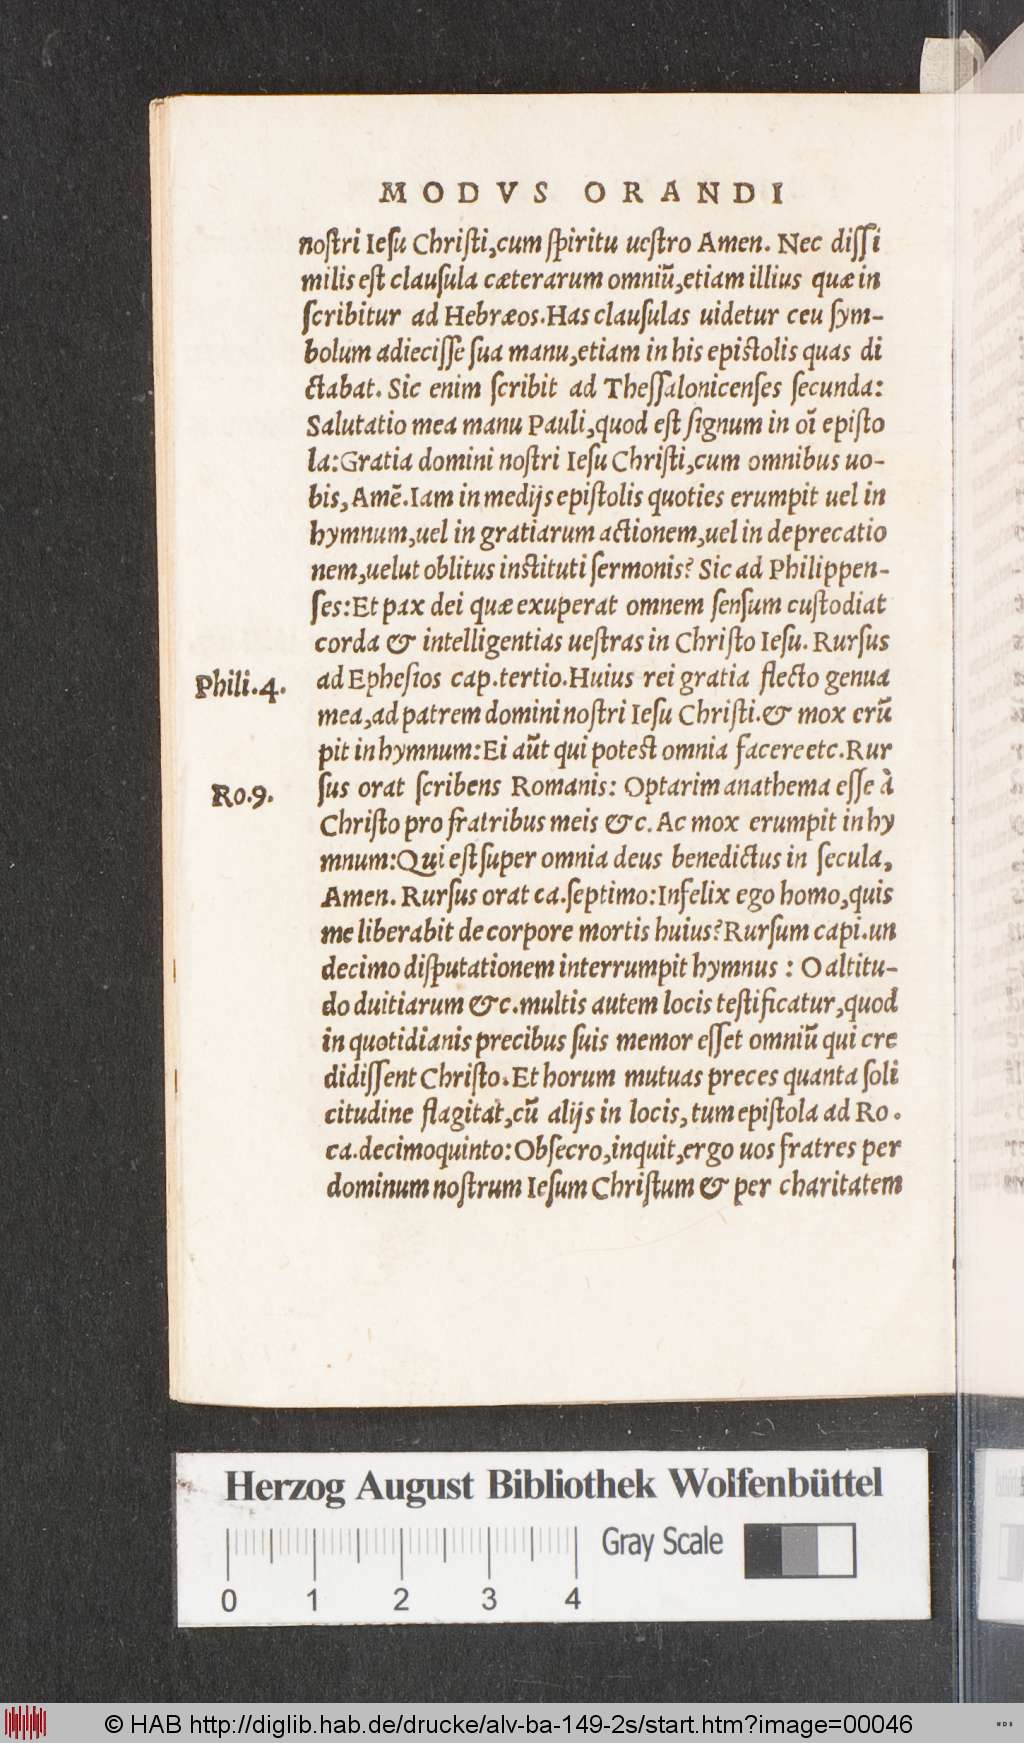 MODVS ORANDI
noſtri Ieſu Chriſti,cum ſpiritu ueſtro Amen. Nec diſſi
milis eſt clauſula cæterarum omniũ,etiam illius quæ in
ſcribitur ad Hebræos.Has clauſulas uidetur ceu ſym-
bolum adieciſſe ſua manu,etiam in his epistolis quas di
ctabat. Sic enim ſcribit ad Theſſalonicenſes ſecunda:
Salutatio mea manu Pauli,quod eſt ſignum in oĩ epiſto
la:Gratia domini noſtri Ieſu Chriſti,cum omnibus uo-
bis, Amẽ.Iam in medijs epiſtolis quoties erumpit uel in
hymnum,uel in gratiarum actionem,uel in deprecatio
nem,uelut oblitus instituti ſermonis? Sic ad Philippen-
ſes:Et pax dei quæ exuperat omnem ſenſum cuſtodiat
corda & intelligentias ueſtras in Chriſto Ieſu. Rurſus
Phili.4.
ad Epheſios cap.tertio.Huius rei gratia flecto genua
mea,ad patrem domini noſtri Ieſu Chriſti.& mox erũ
pit in hymnum:Ei aũt qui potest omnia facere etc.Rur
Ro.9.
ſus orat ſcribens Romanis: Optarim anathema eſſe à
Chriſto pro fratribus meis &c. Ac mox erumpit in hy
mnum:Qui eſt ſuper omnia deus benedictus in ſecula,
Amen. Rurſus orat ca.ſeptimo:Infelix ego homo,quis
me liberabit de corpore mortis huius?Rurſum capi.un
decimo diſputationem interrumpit hymnus : O altitu-
do duitiarum &c.multis autem locis teſtificatur,quod
in quotidianis precibus ſuis memor eſſet omniũ qui cre
didiſſent Chriſto.Et horum mutuas preces quanta ſoli
citudine flagitat,cũ alijs in locis, tum epiſtola ad Ro.
ca.decimoquinto:Obſecro,inquit,ergo uos fratres per
dominum noſtrum Ieſum Chriſtum & per charitatem
Herzog August Bibliothek Wolfenbüttel
Gray Scale
0 1 2 3 4
© HAB http://diglib.hab.de/drucke/alv-ba-149-2s/start.htm?image=00046